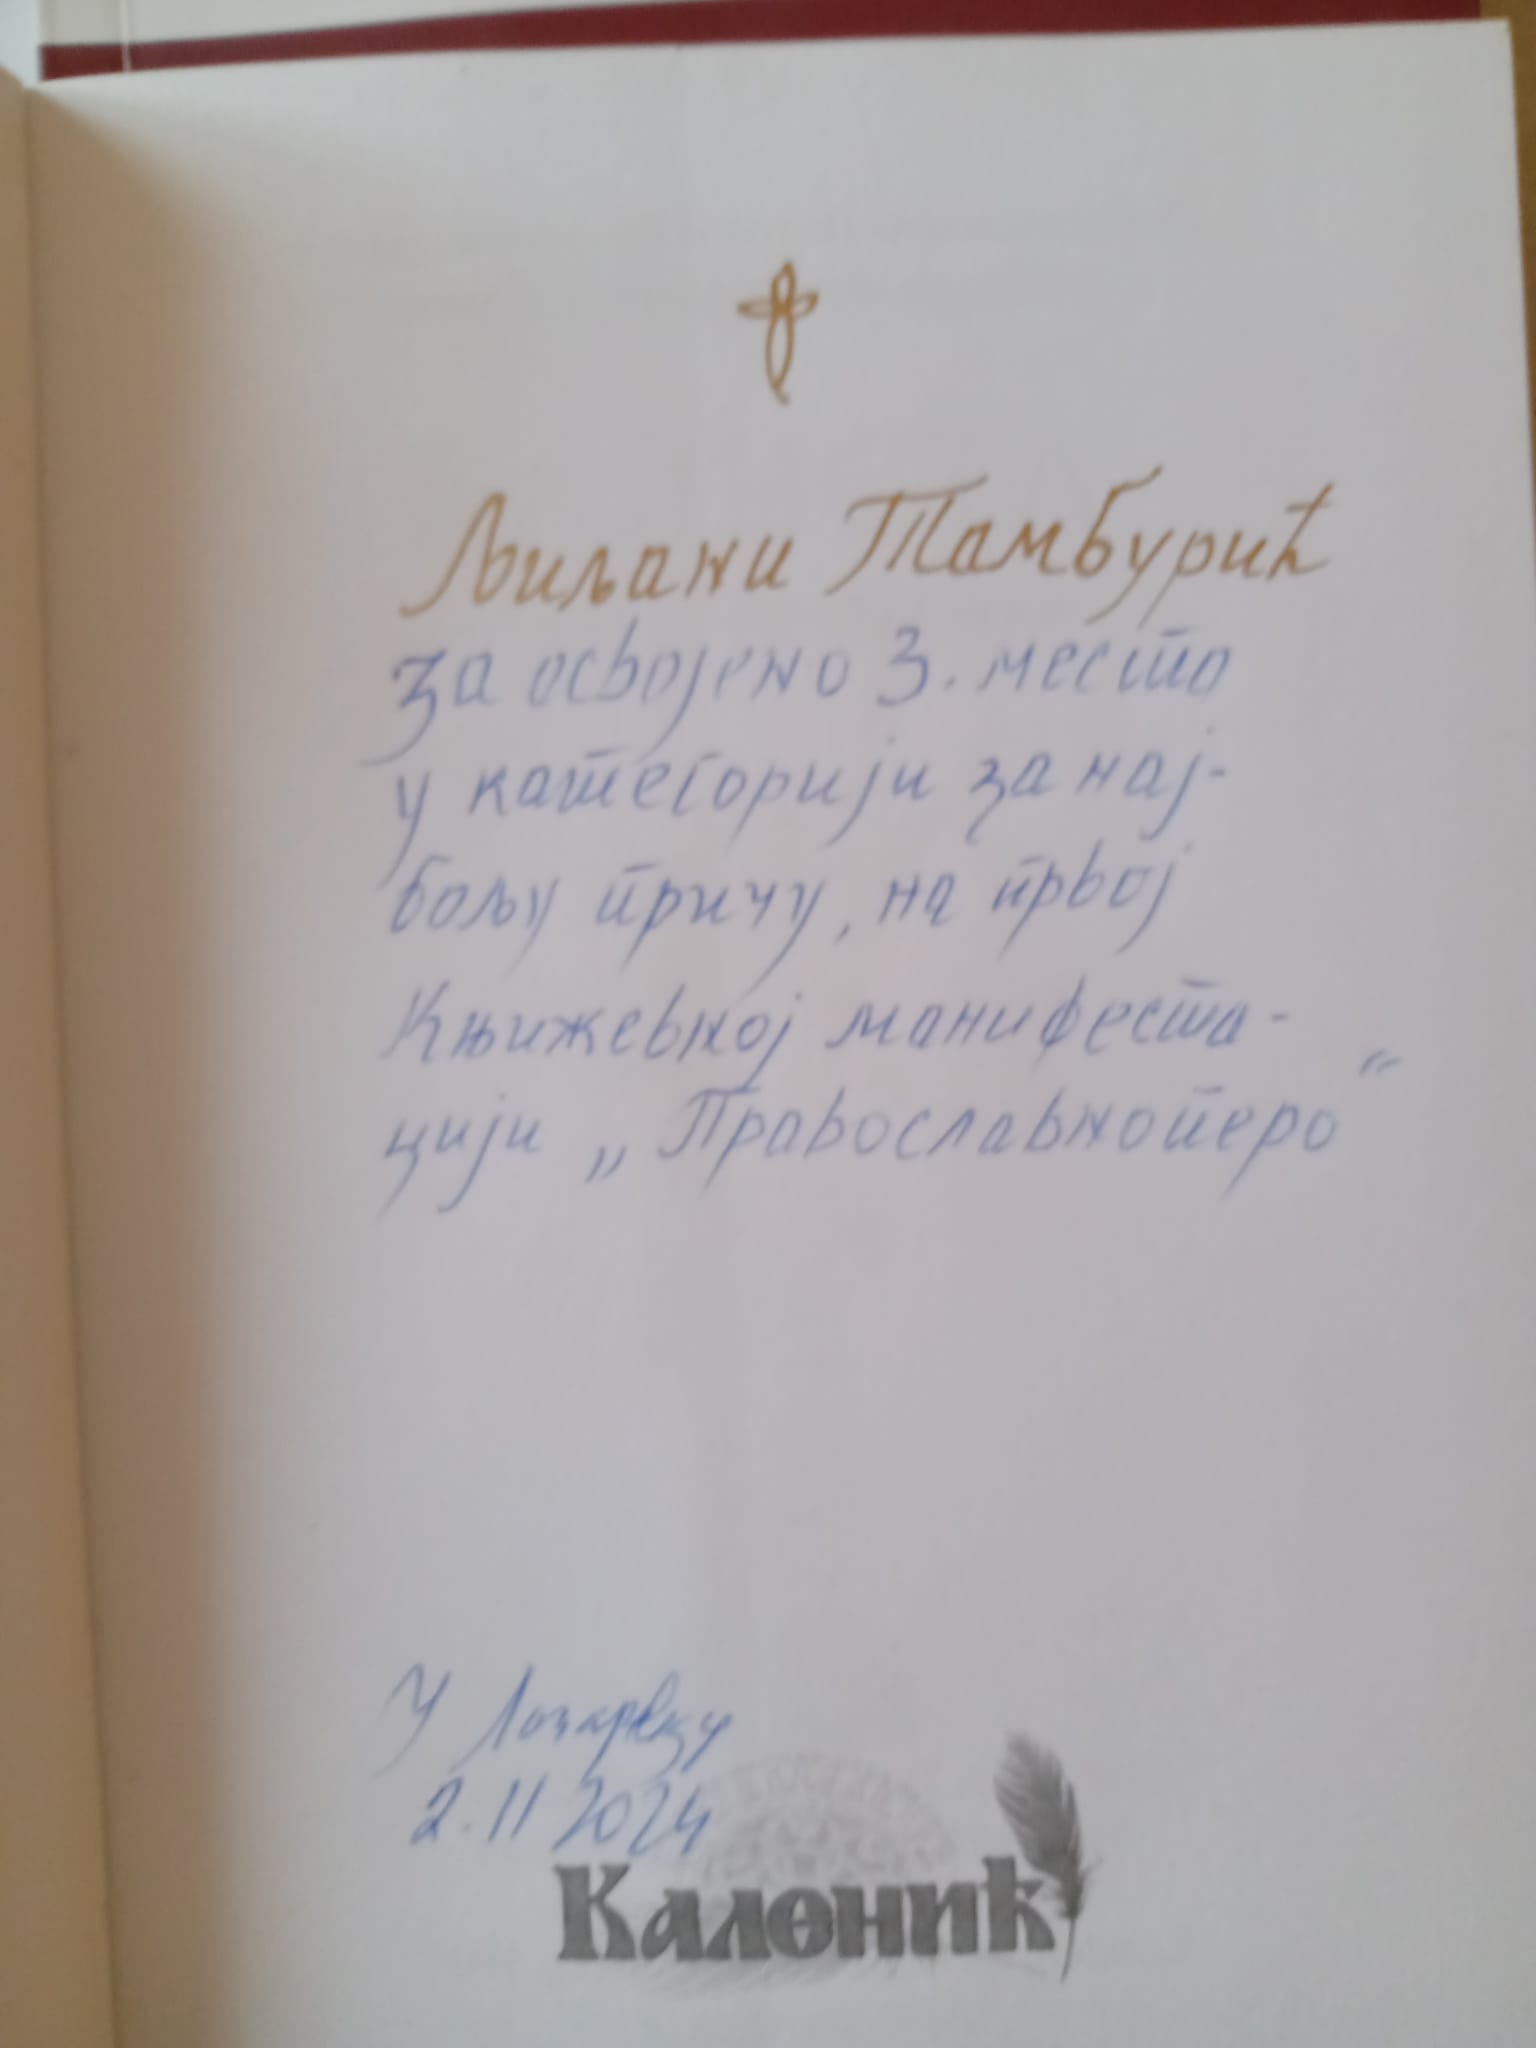 Љиљани Тамбурић
за освојено 3. место
у категорији за нај-
бољу причу, на првој
Књижевној манифеста-
цији „Православно перо"
У Лазаревцу
2.11 2024
Калонић